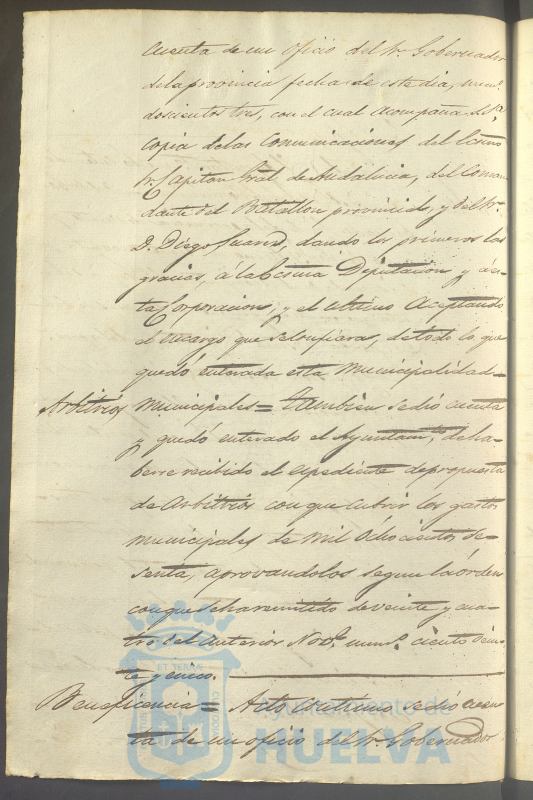 cuenta de un oficio del Sr. Gobernador
de la provincia fecha de este dia, num.º
doscientos tres, con el cual acompaña S.S.ª
copia de las Comunicaciones del Ecsmo
Sr. Capitan Gral de Andalucia, del Coman
dante del Batallon provincial, y del Sr.
D. Diego Suarez, dando los primeros las
gracias, á la Ecsma Diputacion y á es-
ta Corporacion, y el ultimo Aceptando
el encargo que se le confiara, de todo lo que
quedó enterada esta Municipalidad=
Arbitrios Municipales= Tambien se dió cuenta
y quedó enterado el Ayuntam.to de ha-
berse recibido el expediente de propuesta
de Arbitrios con que cubrir los gastos
municipales de mil Ochocientos se=
senta, aprovandolos segun la órden
con que se ha remitido de veinte y cua-
tro del anterior Nov.e num.º ciento vein-
te y cinco.
Beneficencia= Acto continuo se dió cuen
ta de un oficio del Sr. Gobernador
ET TERRAE
CUSTODIA
Ayuntamiento de
HUELVA